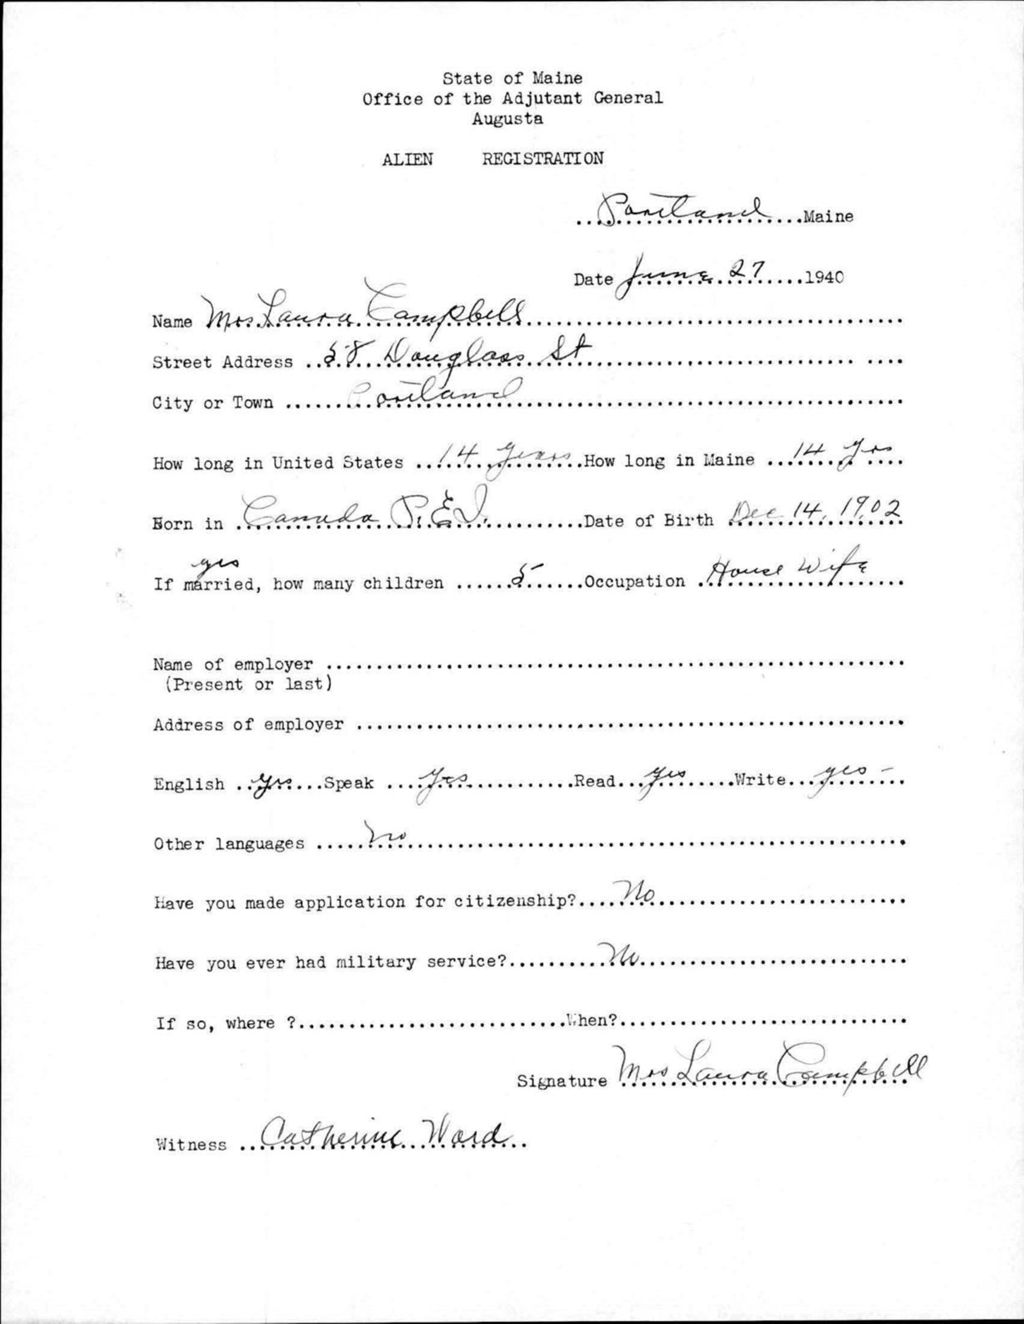 State of Maine
Office of the Adjutant General
Augusta
ALIEN REGISTRATION
Portland Maine
Date June 27 1940
Name Mrs Laura Campbell
Street Address 58 Douglass St
City or Town Portland
How long in United States 14 years How long in Maine 14 yrs
Born in Canada P.E.I. Date of Birth Dec 14, 1902
yes
If married, how many children 5 Occupation House Wife
Name of employer
(Present or last)
Address of employer
English yes Speak yes Read yes Write yes -
Other languages no
Have you made application for citizenship? No
Have you ever had military service? No
If so, where ? When?
Signature Mrs Laura Campbell
Witness Catherine Ward